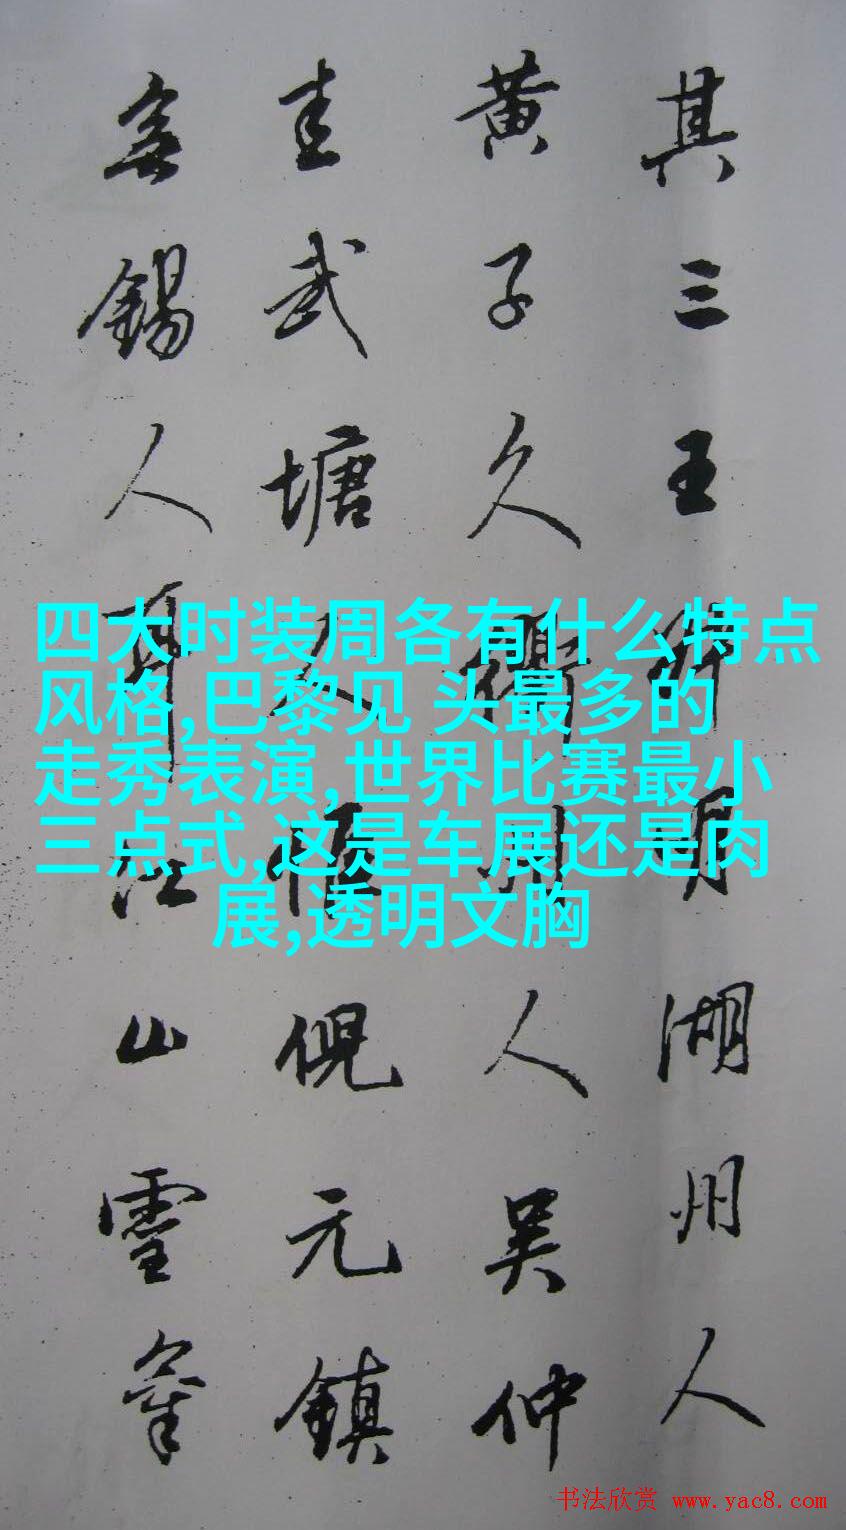 其三王叔明湖州人
黄子久衢州人吴仲
圭武塘人惟倪元鎮
無錫人耳江山靈氣
四大时装周各有什么特点
风格,巴黎见 头最多的
走秀表演,世界比赛最小
三点式,这是车展还是肉
展,透明文胸
书法欣赏 www.yac8.com